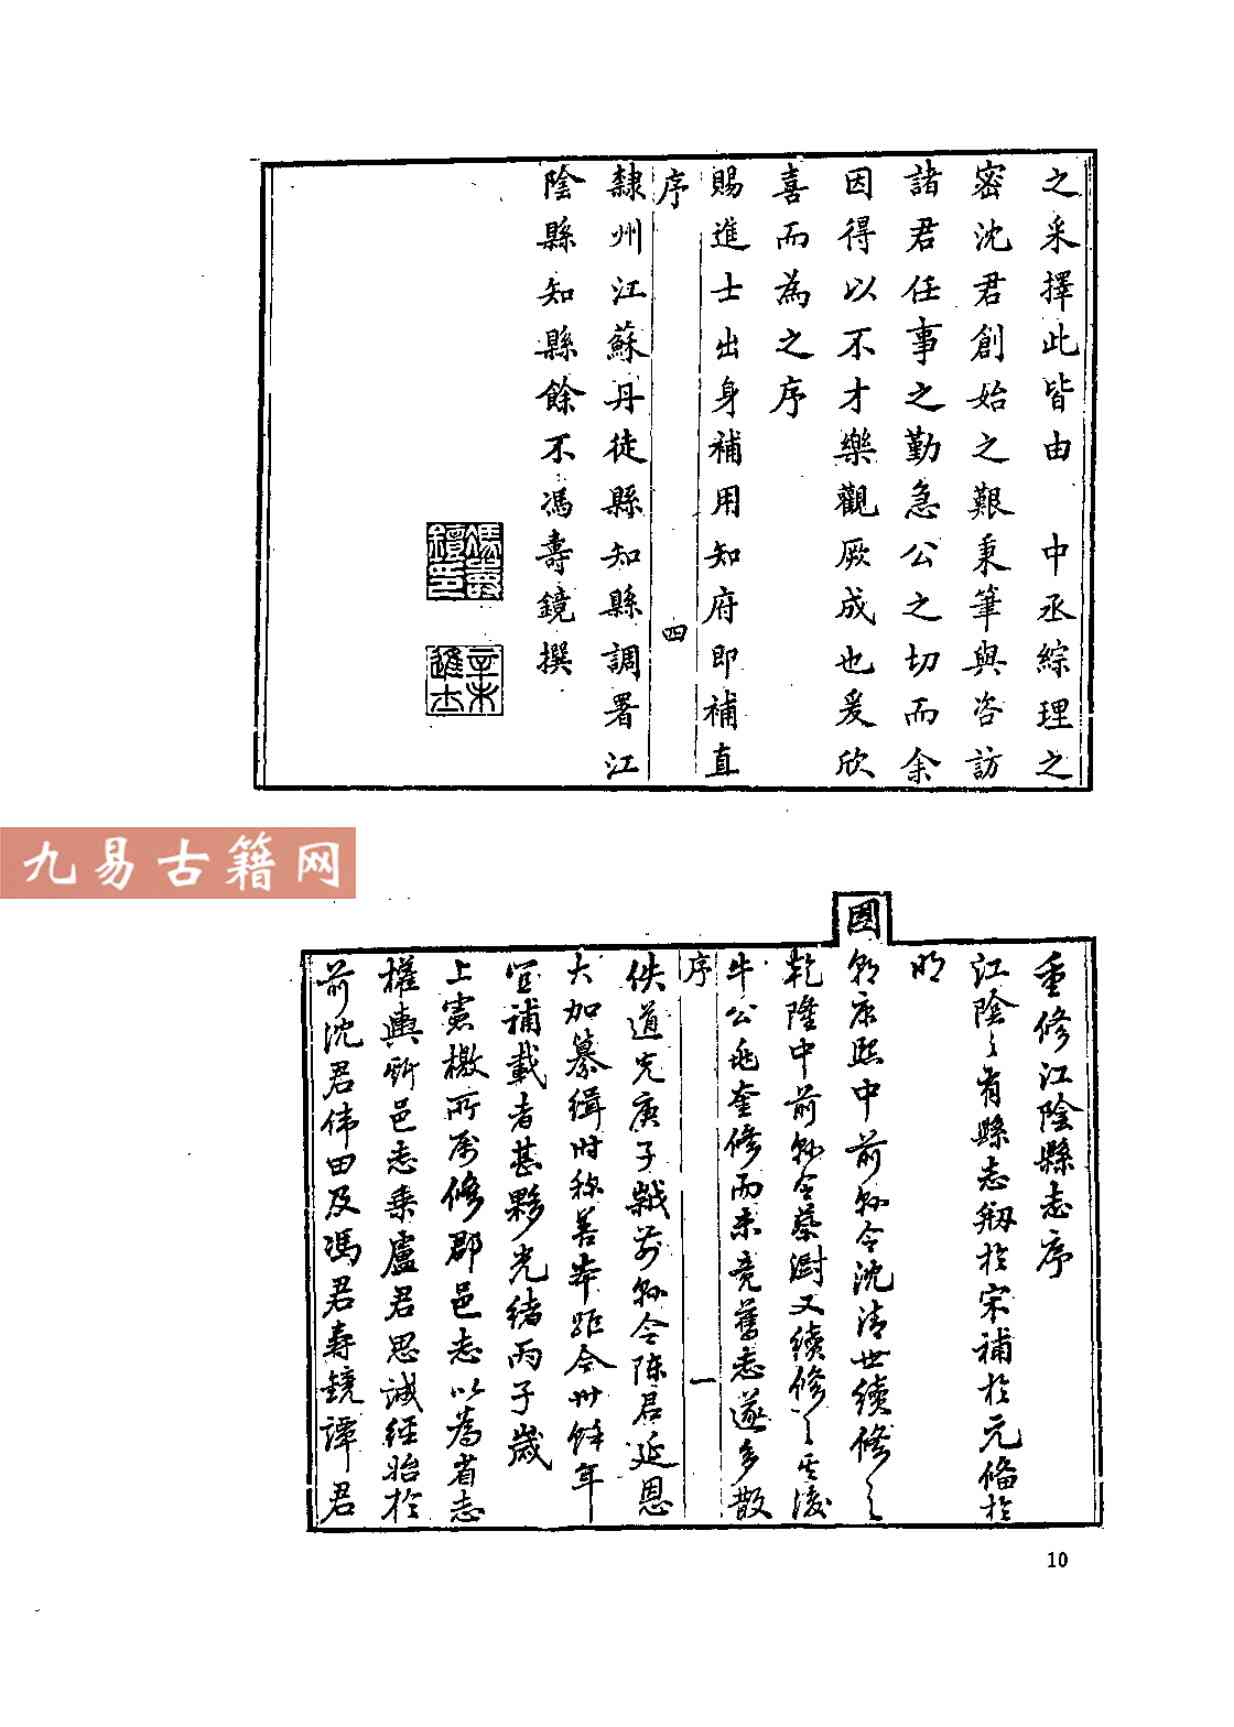 之采擇此皆由　中丞綜理之
密沈君創始之艱秉筆與咨訪
諸君任事之勤急公之切而余
因得以不才樂觀厥成也爰欣
喜而為之序
賜進士出身補用知府即補直
序
四
隸州江蘇丹徒縣知縣調署江
陰縣知縣餘不馮壽鏡撰
馮壽鏡印
辛未進士
九易古籍网
重修江陰縣志序
江陰之有縣志剏於宋補於元備於
明
國朝康熙中前縣令沈清世續修之
乾隆中前縣令蔡澍又續修之其後
牛公兆奎修而未竟舊志遂多散
序
一
佚道光庚子歲前縣令陳君延恩
大加纂緝時称善本距今卅餘年
宜補載者甚夥光緒丙子歲
上憲檄所屬修郡邑志以為省志
權輿所邑志乗盧君思誠經始於
前沈君偉田及馮君壽鏡譚君
10